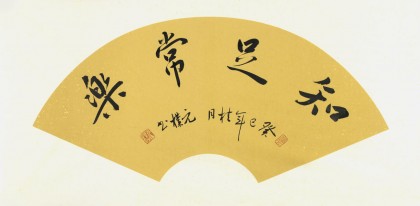 知足常樂
癸巳年桂月 元樸書